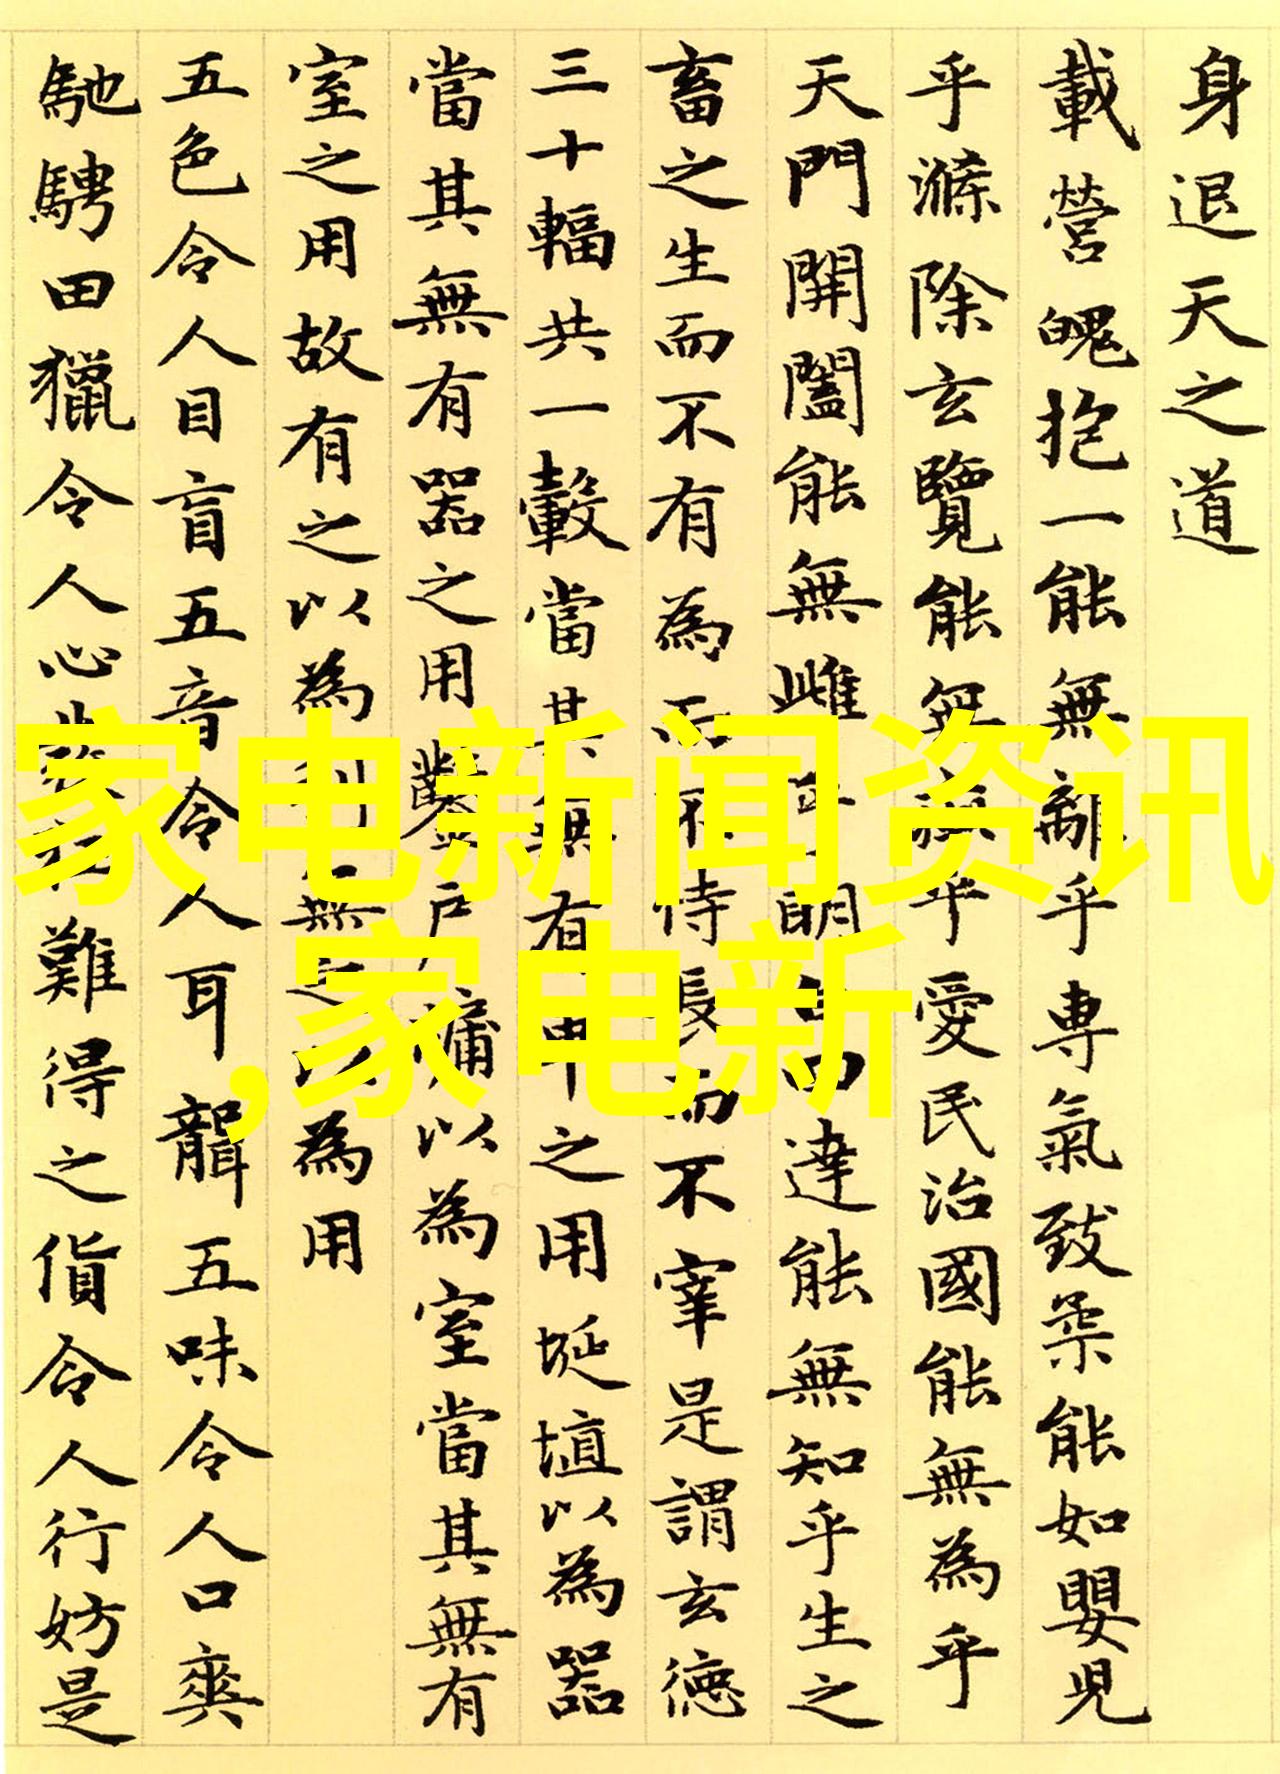 身退天之道
載營魄抱一能無離乎専氣致柔能如嬰児
乎滌除玄覽能無疵乎愛民治國能無為乎
天門開闔能無雌乎明白四達能無知乎生之
畜之生而不有為而不恃長而不宰是謂玄德
三十輻共一轂當其無有車之用埏埴以為器
當其無有器之用鑿戶牖以為室當其無有
室之用故有之以為利無之以為用
五色令人目盲五音令人耳聾五味令人口爽
馳騁田獵令人心發狂難得之貨令人行妨是
家电新闻资讯
,家电新